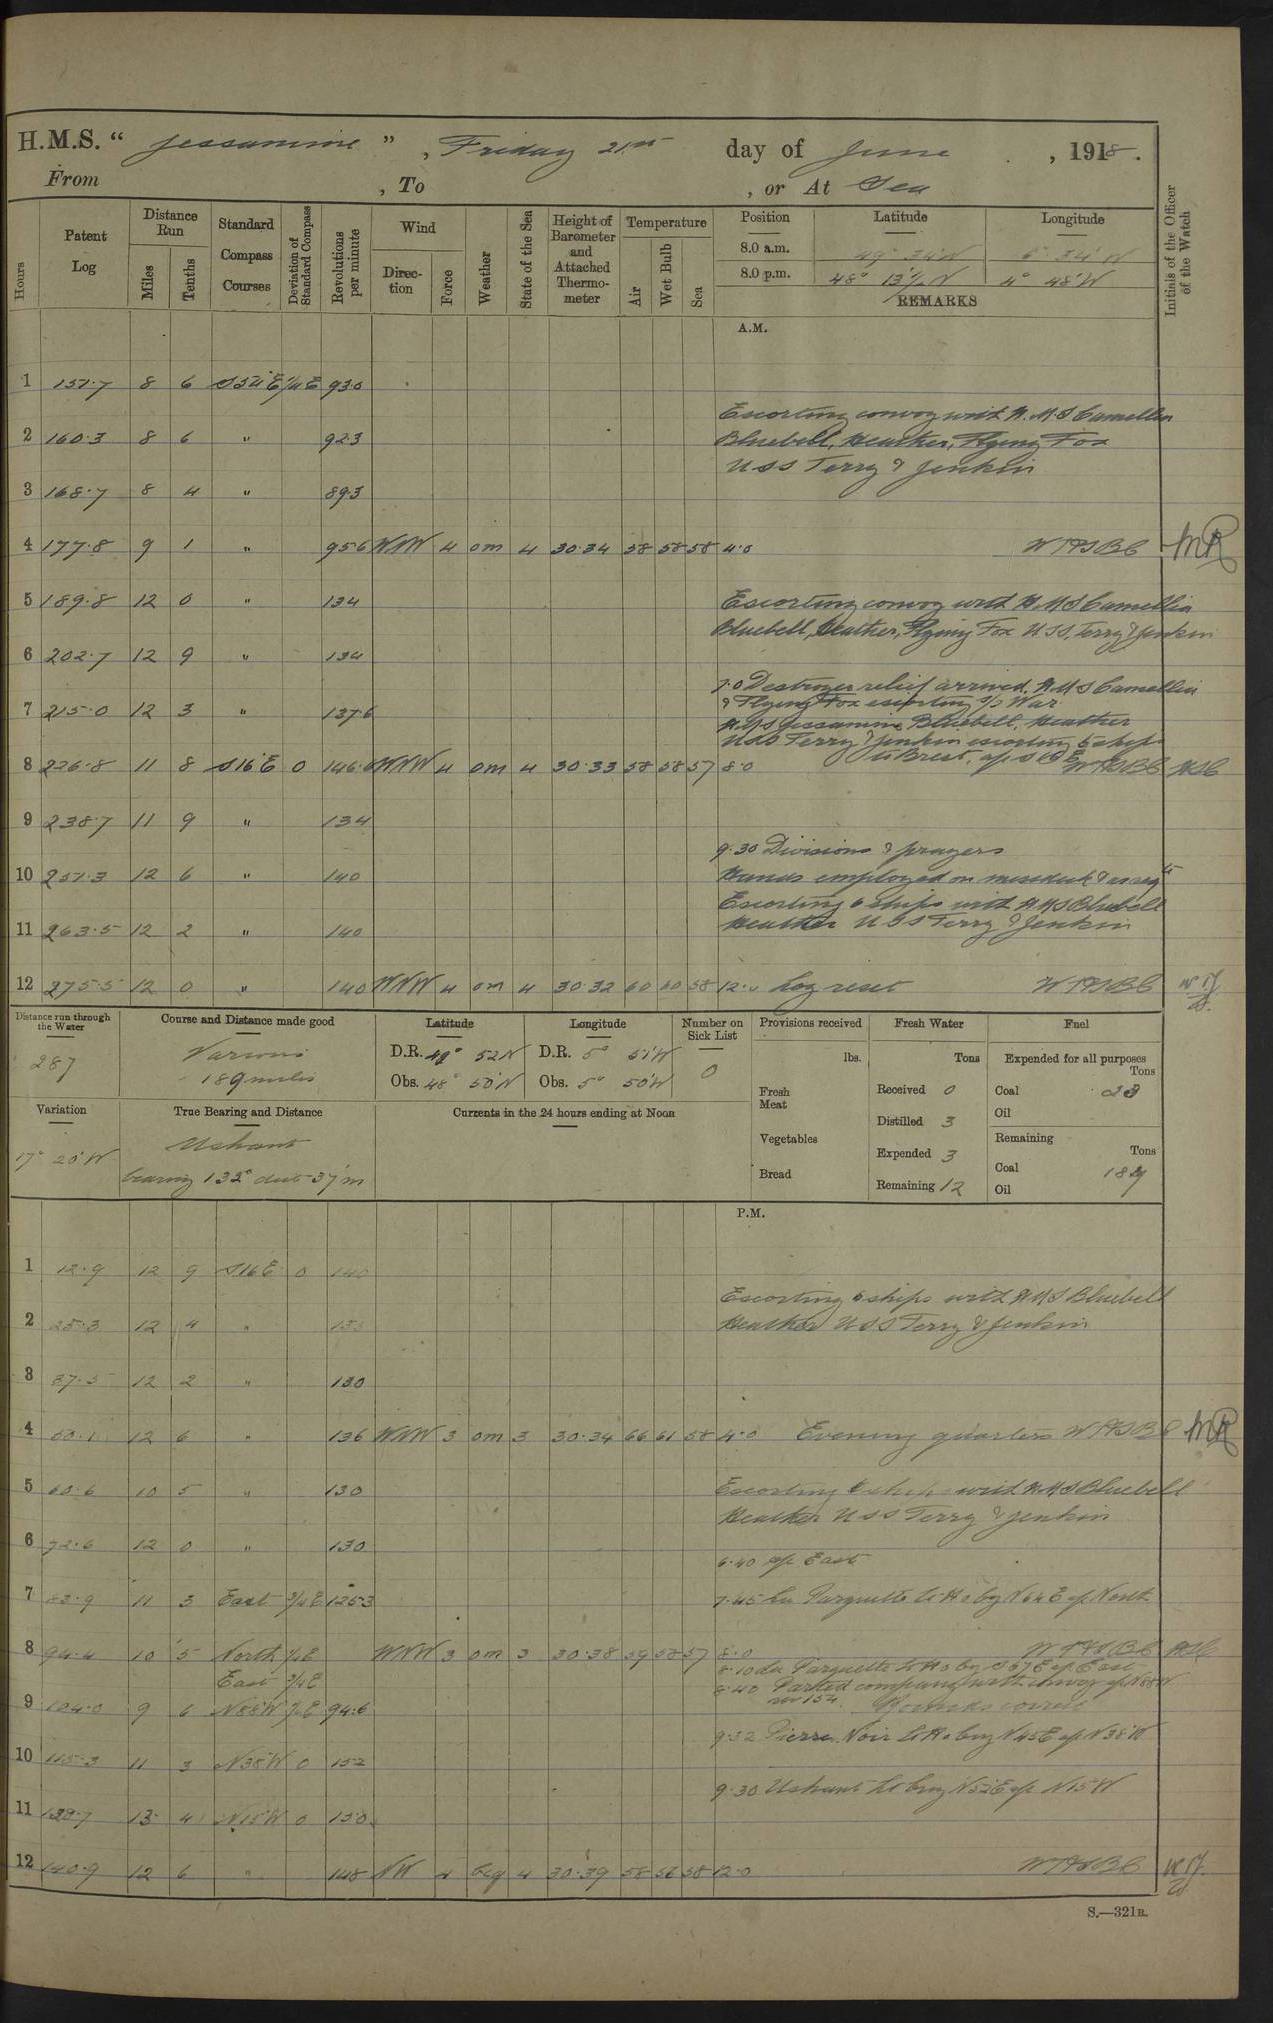 H.M.S. “ Jessamine ” , Friday 21st day of June , 1918.
From , To , or At Sea
Hours
Patent Log
Distance Run
Miles
Tenths
Standard Compass Courses
Deviation of Standard Compass
Revolutions per minute
Wind
Direction
Force
Weather
State of the Sea
Height of Barometer and Attached Thermometer
Temperature
Air
Wet Bulb
Sea
Position Latitude Longitude
8.0 a.m. 49° 34'N 6° 34' W
8.0 p.m. 48° 13½ N 4° 48'W
REMARKS
Initials of the Officer of the Watch
A.M.
1 151.7 8 6 S54E ¼E 93.0
Escorting convoy with H.M.S Camellia
2 160.3 8 6 " 92.3 Bluebell, Heather, Flying Fox
USS Terry & Jenkin
3 168.7 8 4 " 89.3
4 177.8 9 1 " 95.6 WNW 4 om 4 30.34 58 58 58 4.0
5 189.8 12 0 " 134 Escorting convoy with H.M.S Camellia
Bluebell, Heather, Flying Fox USS. Terry & Jenkin
6 202.7 12 9 " 134
7.0 Destroyer relief arrived. HMS Camellia
7 215.0 12 3 " 137.6 & Flying Fox escorting S/S War
HMS Jessamine, Bluebell, Heather
USS Terry & Jenkin escorting 6 ships
to Brest, a/c S16E
8 226.8 11 8 S16E 0 146.6 WNW 4 om 4 30.33 58 58 57 8.0
9 238.7 11 9 " 134
9.30 Divisions & prayers
10 251.3 12 6 " 140 Hands employed on messdeck & as reqte
Escorting 6 ships with HMS Bluebell
11 263.5 12 2 " 140 Heather USS Terry & Jenkin
12 275.5 12 0 " 140 WNW 4 om 4 30.32 60 60 58 12.0 Log reset
Distance run through the Water
287
Course and Distance made good
Various
189 miles
Latitude
D.R. 48° 52 N
Obs. 48° 50'N
Longitude
D.R. 5° 51'W
Obs. 5° 50'W
Number on Sick List
0
Provisions received
lbs.
Fresh Meat
Vegetables
Bread
Fresh Water
Tons
Received 0
Distilled 3
Expended 3
Remaining 12
Fuel
Expended for all purposes
Tons
Coal 28
Oil
Remaining
Tons
Coal 189
Oil
Variation
17° 20'W
True Bearing and Distance
Ushant
bearing 132° dist 37'm
Currents in the 24 hours ending at Noon
P.M.
1 12.9 12 9 S16E 0 140
Escorting 6 ships with HMS Bluebell
2 25.3 12 4 " Heather USS Terry & Jenkin
3 37.5 12 2 " 130
4 50.1 12 6 " 136 WNW 3 om 3 30.34 66 61 58 4.0 Evening quarters
5 60.6 10 5 " 130 Escorting 6 ships with HMS Bluebell
Heather USS Terry & Jenkin
6 72.6 12 0 " 130
6.40 a/c East
7 83.9 11 3 East ¾E 125.3 7.45 La Parquette Lt Ho bg N64E a/c North
8 94.4 10 5 North ¼E WNW 3 om 3 30.38 59 58 57 8.0
East ¾E 8.10 La Parquette Lt Ho bg S67E a/c East
8.40 Parted company with convoy a/c N88W
9 104.0 9 6 N88W ¾E 94.6
9.32 Pierre Noir Lt Ho brg N45E a/c N38W
10 115.3 11 3 N38W 0 152
9.30 Ushant Lt brg N52E a/c N15W
11 128.7 13 4 N15W 0 150
12 140.9 12 6 " 148 NW 4 bcg 4 30.39 58 56 58 12.0
S.—321B.